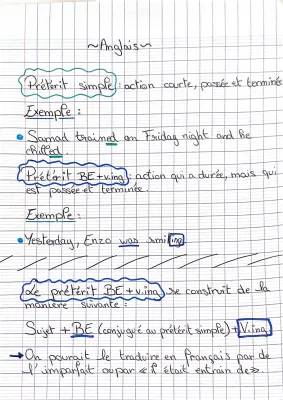 ~Anglais~
Prétérit simple : action courte, passée et terminée
Exemple :
• Samad trained on Friday night and he
chilled.
Prétérit BE+v.ing : action qui a durée, mais qui
est passée et terminée.
Exemple :
• Yesterday, Enzo was smiling
Le prétérit BE+v.ing se construit de la
manière suivante :
Sujet + BE (conjugué au prétérit simple) + V.ing
→ On pourait le traduire en français par de
l'imparfait ou par « Il était entrain de ».